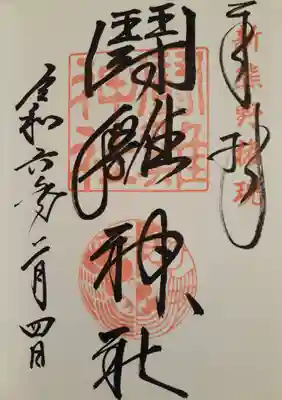 奉拝
新熊野権現
鬪雞神社
鬪雞神社
令和六年二月四日